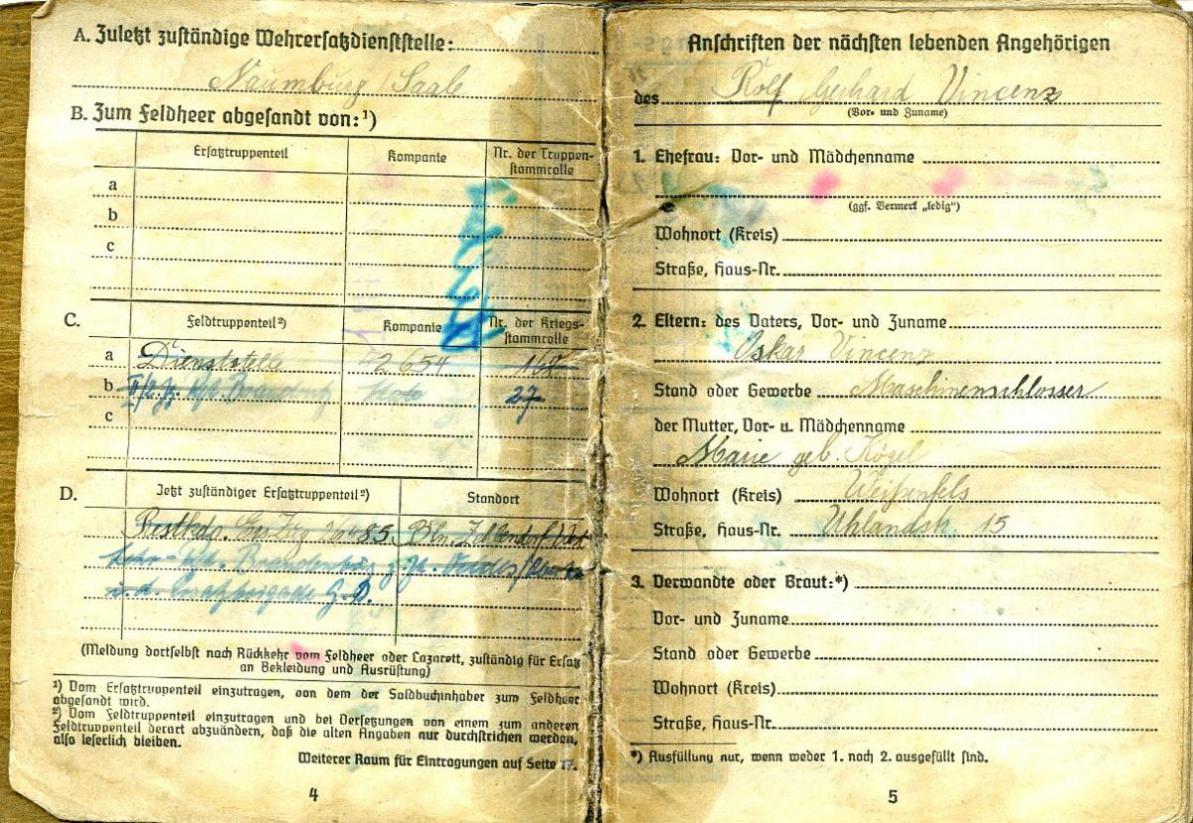 A. Zuletzt zuständige Wehrersatzdienststelle:
Naumburg / Saale
B. Zum Feldheer abgesandt von:¹)
Ersatztruppenteil
Kompanie
Nr. der Truppen-
stammrolle
a
b
c
C.
Feldtruppenteil²)
Kompanie
Nr. der Kriegs-
stammrolle
a Dienststelle 02654 168
b Brandenbg 27
c
D.
Jetzt zuständiger Ersatztruppenteil²)
Standort
85. Bln. Zehlendorf
Brandenburg
i. d. G.D.
(Meldung dortselbst nach Rückkehr vom Feldheer oder Lazarett, zuständig für Ersatz
an Bekleidung und Ausrüstung)
¹) Vom Ersatztruppenteil einzutragen, von dem der Soldbuchinhaber zum Feldheer
abgesandt wird.
²) Vom Feldtruppenteil einzutragen und bei Versetzungen von einem zum anderen
Feldtruppenteil derart abzuändern, daß die alten Angaben nur durchstrichen werden,
also leserlich bleiben.
Weiterer Raum für Eintragungen auf Seite 17.
4
Anschriften der nächsten lebenden Angehörigen
des Rolf Gerhard Vincenz
(Vor- und Zuname)
1. Ehefrau: Vor- und Mädchenname
(ggf. Vermerk „ledig“)
Wohnort (Kreis)
Straße, Haus-Nr.
2. Eltern: des Vaters, Vor- und Zuname
Oskar Vincenz
Stand oder Gewerbe Maschinenschlosser
der Mutter, Vor- u. Mädchenname
Marie geb. Kögel
Wohnort (Kreis) Weißenfels
Straße, Haus-Nr. Uhlandstr. 15
3. Verwandte oder Braut:*)
Vor- und Zuname
Stand oder Gewerbe
Wohnort (Kreis)
Straße, Haus-Nr.
*) Ausfüllung nur, wenn weder 1. noch 2. ausgefüllt sind.
5